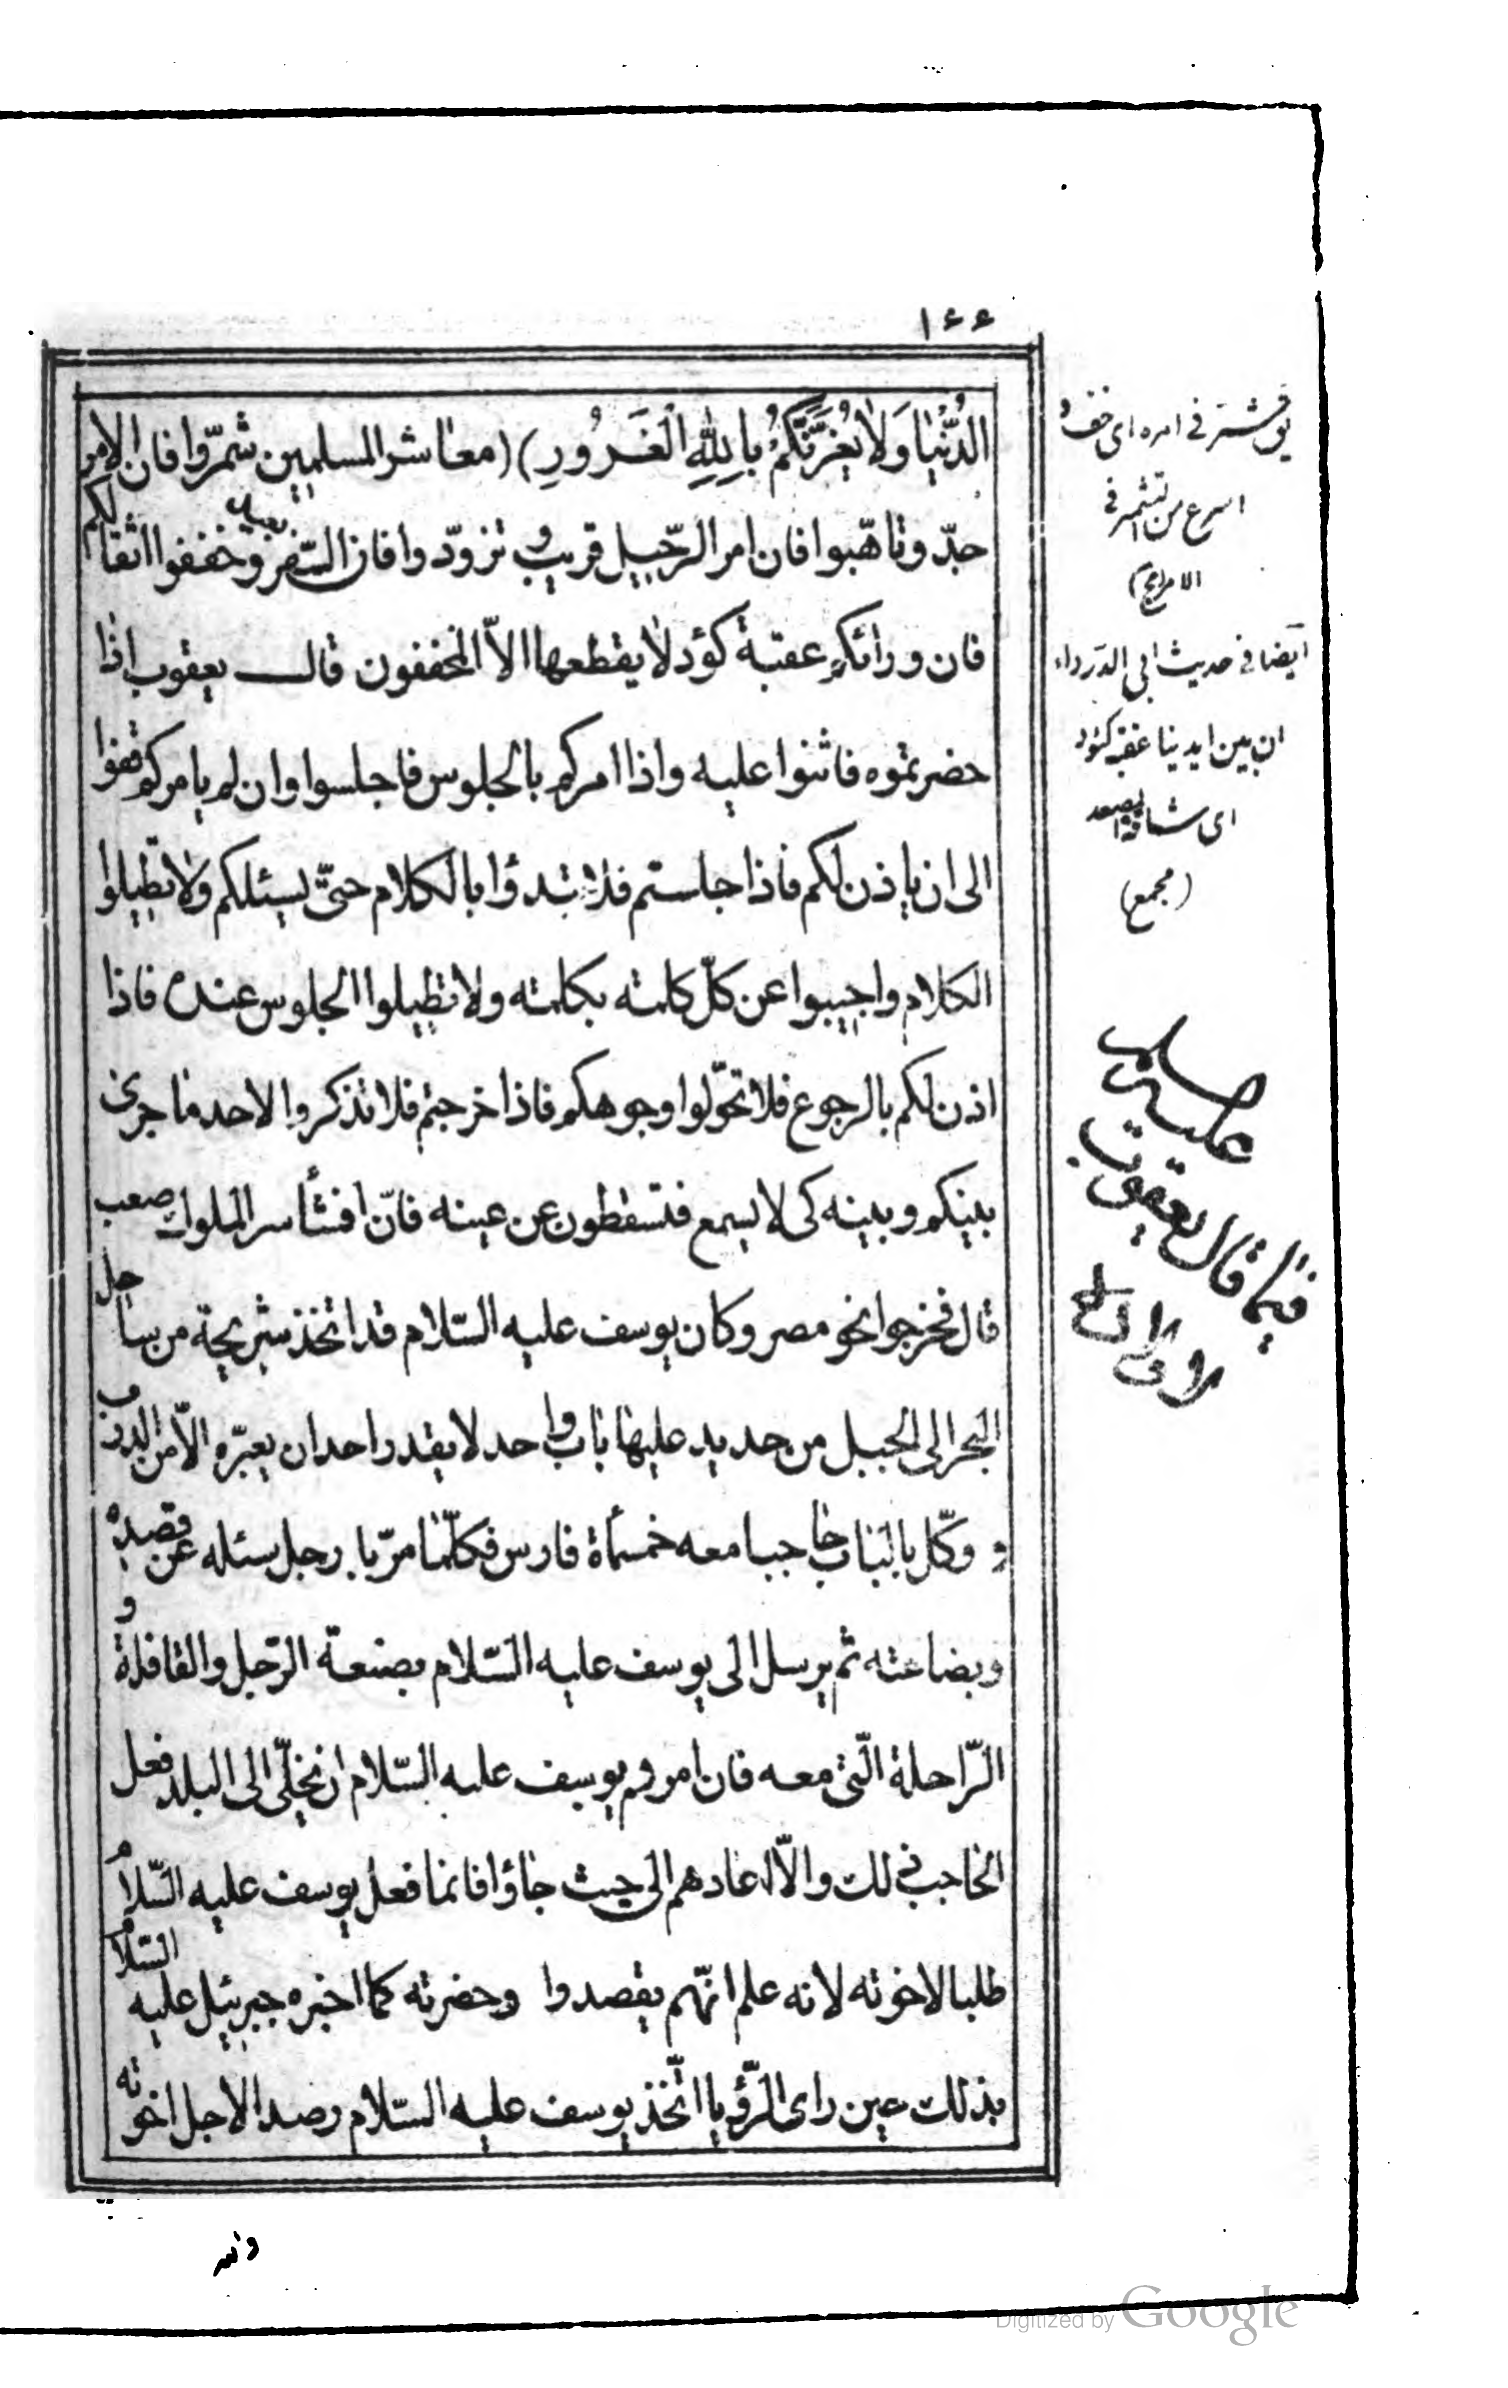 ١٦٦
الدُّنْيٰا وَلاٰ يَغُرَّنَّكُمْ بِاللهِ الْغَرُورِ) (معاشر المسلمين شمّروا فان الامر
جدّ وتاهّبوا فان امر الرّحيل قريب و تزوّدوا فان السّفر بعيد وخففوا اثقالكم
فان ورائكم عقبة كؤد لا يقطعها الاّ المخففون قال يعقوب اذا
حضرتموه فاثنوا عليه واذا امركم بالجلوس فاجلسوا وان لم يامركم قفوا
الى ان ياذن لكم فاذا جلستم فلا تبدؤا بالكلام حتّى يسئلكم ولا تطيلوا
الكلام واجيبوا عن كلّ كلمته بكلمته ولا تطيلوا الجلوس عنده فاذا
اذن لكم بالرجوع فلا تحوّلوا وجوهكم فاذا خرجتم فلا تذكروا لاحد ما جرى
بينكم وبينه كى لا يسمع فتسقطون عن عينه فانّ افشأ سر الملوك صعب
قال فخرجوا نحو مصر وكان يوسف عليه السّلام قد اتخذ شريحة من ساحل
البحر الى الجبل من حديد عليها باب واحد لا يقدر احد ان يعبّره الاّ من الدرب
و وكّل بالباب حاجبا معه خمسأة فارس فكلّما مرّ بار رجل سئله عن قصده
وبضاعته ثم يرسل الى يوسف عليه السّلام بصنعة الرّجل والقافلة و
الرّاحلة الّتى معه فان امرهم يوسف عليه السّلام ان نخلّى الى البلد فعل
الحاجب ذلك والاّ اعادهم الى حيث جاؤا فانما فعل يوسف عليه السّلام
طلبا لاخوته لانه علم انّهم يقصدوا وحضرته كما اخبره جبرئيل عليه السّلام
بذلك حين راى الرّؤيا اتّخذ يوسف عليه السّلام رصدا لاجل اخوته
يق شمّر فى امره اى خفّ و
اسرع من التشمر فى
الامر
ايضا فى حديث ابى الدرداء
ان بين ايدينا عقبة كئود
اى شاقة المصعد
(مجمع)
فيما قال يعقوب
عليه السلام
لاولاده
Digitized by Google